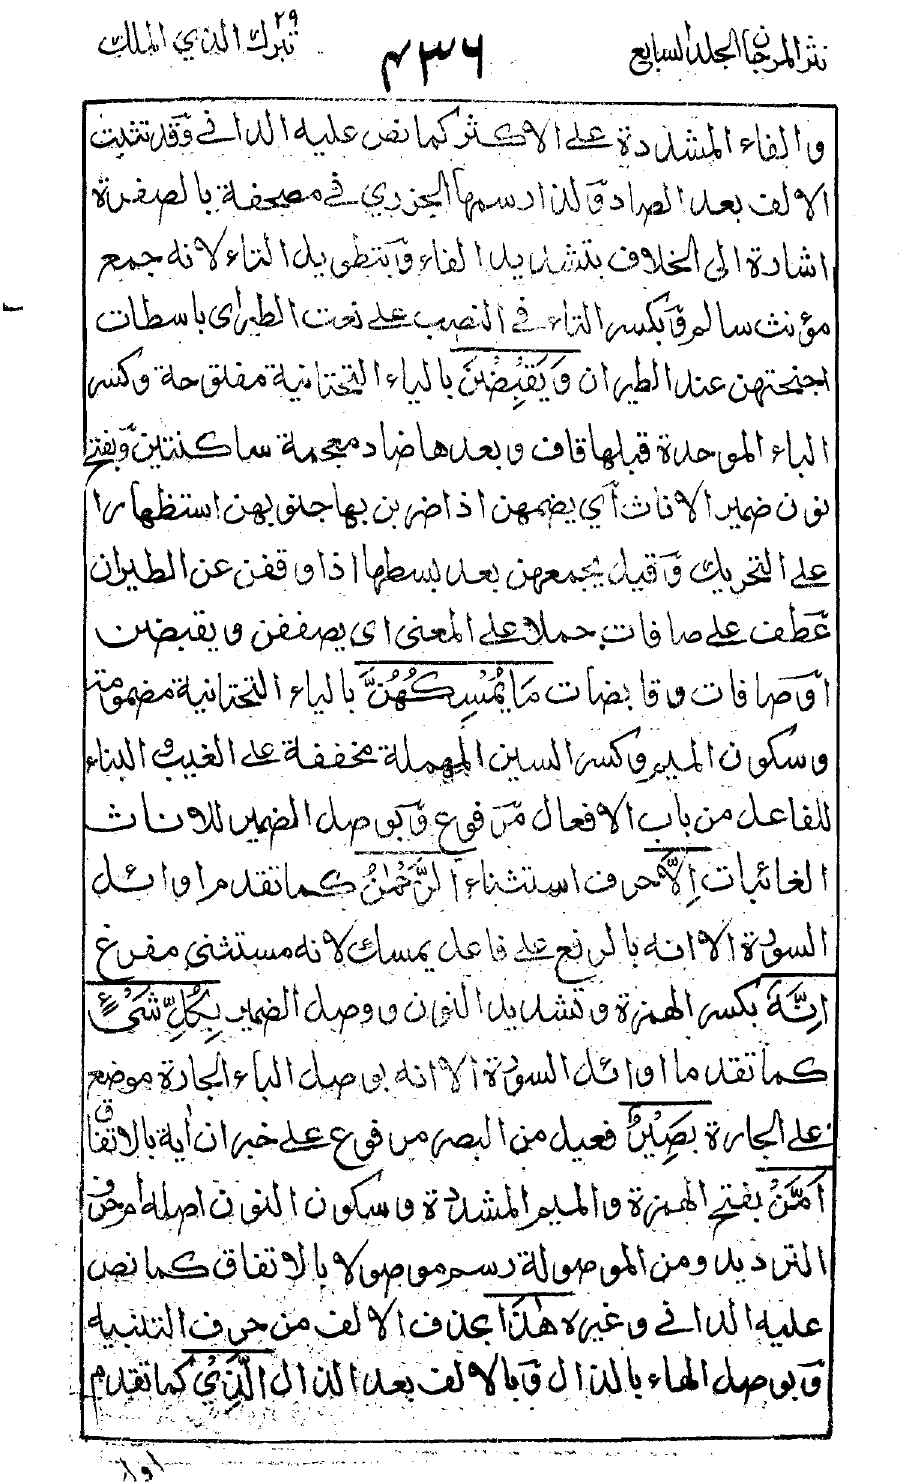 نثر المرجان الجلد السابع
۴۳۶
تبرك الذي الملك ٢٩
والفاء المشددة على الاكثر كما نص عليه الداني وقد تثبت
الالف بعد الصاد ولذا رسمها الجزري في مصحفة بالصفرة
اشارة الى الخلاف بتشديد الفاء وبتطويل التاء لانه جمع
مؤنث سالم وبكسر التاء في النصب على نعت الطيراي باسطات
اجنحتهن عند الطيران وَيَقْبِضْنَ بالياء التحتانية مفتوحة وكسر
الباء الموحدة قبلها قاف وبعدها ضاد معجمة ساكنتين وبفتح
نون ضمير الاناث أي يضممهن اذا ضربن بها جنوبهن استظهارا
على التحريك وقيل يجمعهن بعد بسطها اذا وقفن عن الطيران
عطف على صافات حملا على المعنى اى يصففن ويقبضن
او صافات وقابضات مَا يُمْسِكُهُنَّ بالياء التحتانية مضمومة
وسكون الميم وكسر السين المهملة مخففة على الغيب والبناء
للفاعل من باب الافعال مرفوع وبوصل الضمير للاناث
الغائبات اِلَّا حرف استثناء الرَّحْمٰنُ كما تقدم اوائل
السورة الا انه بالرفع على فاعل يمسك لانه مستثنى مفرغ
اِنَّهٗ بكسر الهمزة وتشديد النون ووصل الضمير بِكُلِّ شَيْءٍ
كما تقدما اوائل السورة الا انه بوصل الباء الجارة موضع
على الجارة بَصِيْرٌ فعيل من البصر مرفوع على خبر ان أية بالاتفاق
اَمَّنْ بفتح الهمزة والميم المشددة وسكون النون اصله ام حرف
الترديد ومن الموصولة رسم موصولا بالاتفاق كما نص
عليه الداني وغيره هٰذَا بحذف الالف من حرف التنبيه
وبوصل الهاء بالذال وبالالف بعد الذال الَّذِيْ كما تقدم
اول